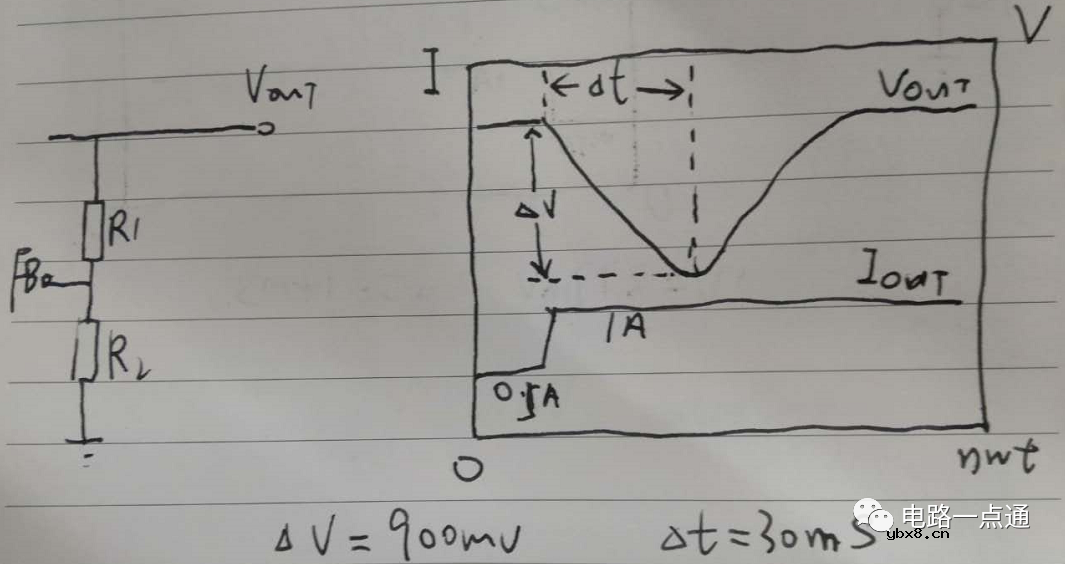 I
V
VOUT
Δt
VOUT
R1
ΔV
FB
IOUT
1A
R2
0.5A
0
nwt
电路一点通
ybx8.cn
ΔV=900mV
Δt=30mS